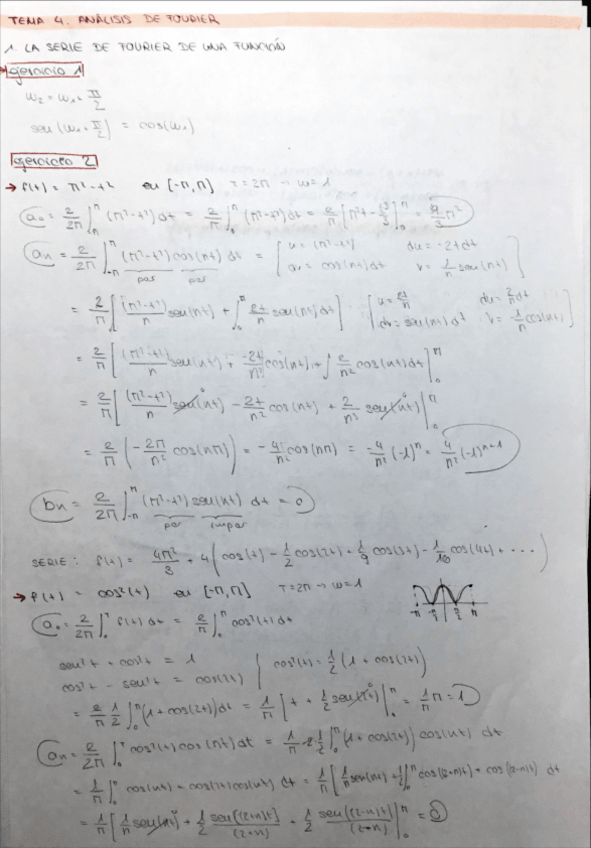 TEMA 4. ANÁLISIS DE FOURIER
1. LA SERIE DE FOURIER DE UNA FUNCIÓN
ejercicio 1
w₂ = w₁ + π/2
sen(w₁ + π/2) = cos(w₁)
ejercicio 2
→ f(t) = π² - t² en [-π, π] T = 2π → w = 1
a₀ = 2/2π ∫₋π^π (π² - t²) dt = 2/π ∫₀^π (π² - t²) dt = 2/π [π²t - t³/3]₀^π = 4/3 π²
an = 2/2π ∫₋π^π (π² - t²) cos(nt) dt = [u = (π² - t²) du = -2t dt
dv = cos(nt) dt v = 1/n sen(nt)]
par par
= 2/π [(π² - t²)/n sen(nt) + ∫₀^π 2t/n sen(nt) dt] [u = 2t/n du = 2/n dt
dv = sen(nt) dt v = -1/n cos(nt)]
= 2/π [(π² - t²)/n sen(nt) + -2t/n² cos(nt) + ∫ 2/n² cos(nt) dt]₀^π
= 2/π [(π² - t²)/n sen(nt) - 2t/n² cos(nt) + 2/n³ sen(nt)]₀^π
= 2/π (-2π/n² cos(nπ)) = -4/n² cos(nπ) = -4/n² (-1)ⁿ = 4/n² (-1)ⁿ⁺¹
bn = 2/2π ∫₋π^π (π² - t²) sen(nt) dt = 0
par impar
SERIE: f(t) = 4π²/3 + 4 (cos(t) - 1/2 cos(2t) + 1/9 cos(3t) - 1/16 cos(4t) + ...)
→ f(t) = cos²(t) en [-π, π] T = 2π → w = 1
-π -π/2 π/2 π
a₀ = 2/2π ∫₀^π f(t) dt = 2/π ∫₀^π cos²(t) dt
sen²t + cos²t = 1
cos²t - sen²t = cos(2t)
cos²(t) = 1/2 (1 + cos(2t))
= 2/π 1/2 ∫₀^π (1 + cos(2t)) dt = 1/π [t + 1/2 sen(2t)]₀^π = 1/π π = 1
an = 2/2π ∫₀^π cos²(t) cos(nt) dt = 1/π 2 1/2 ∫₀^π (1 + cos(2t)) cos(nt) dt
= 1/π ∫₀^π cos(nt) + cos(2t) cos(nt) dt = 1/π [1/n sen(nt) + 1/2 ∫₀^π cos(2+n)t + cos(2-n)t dt
= 1/π [1/n sen(nt) + 1/2 sen[(2+n)t]/(2+n) + 1/2 sen[(2-n)t]/(2-n)]₀^π = 0